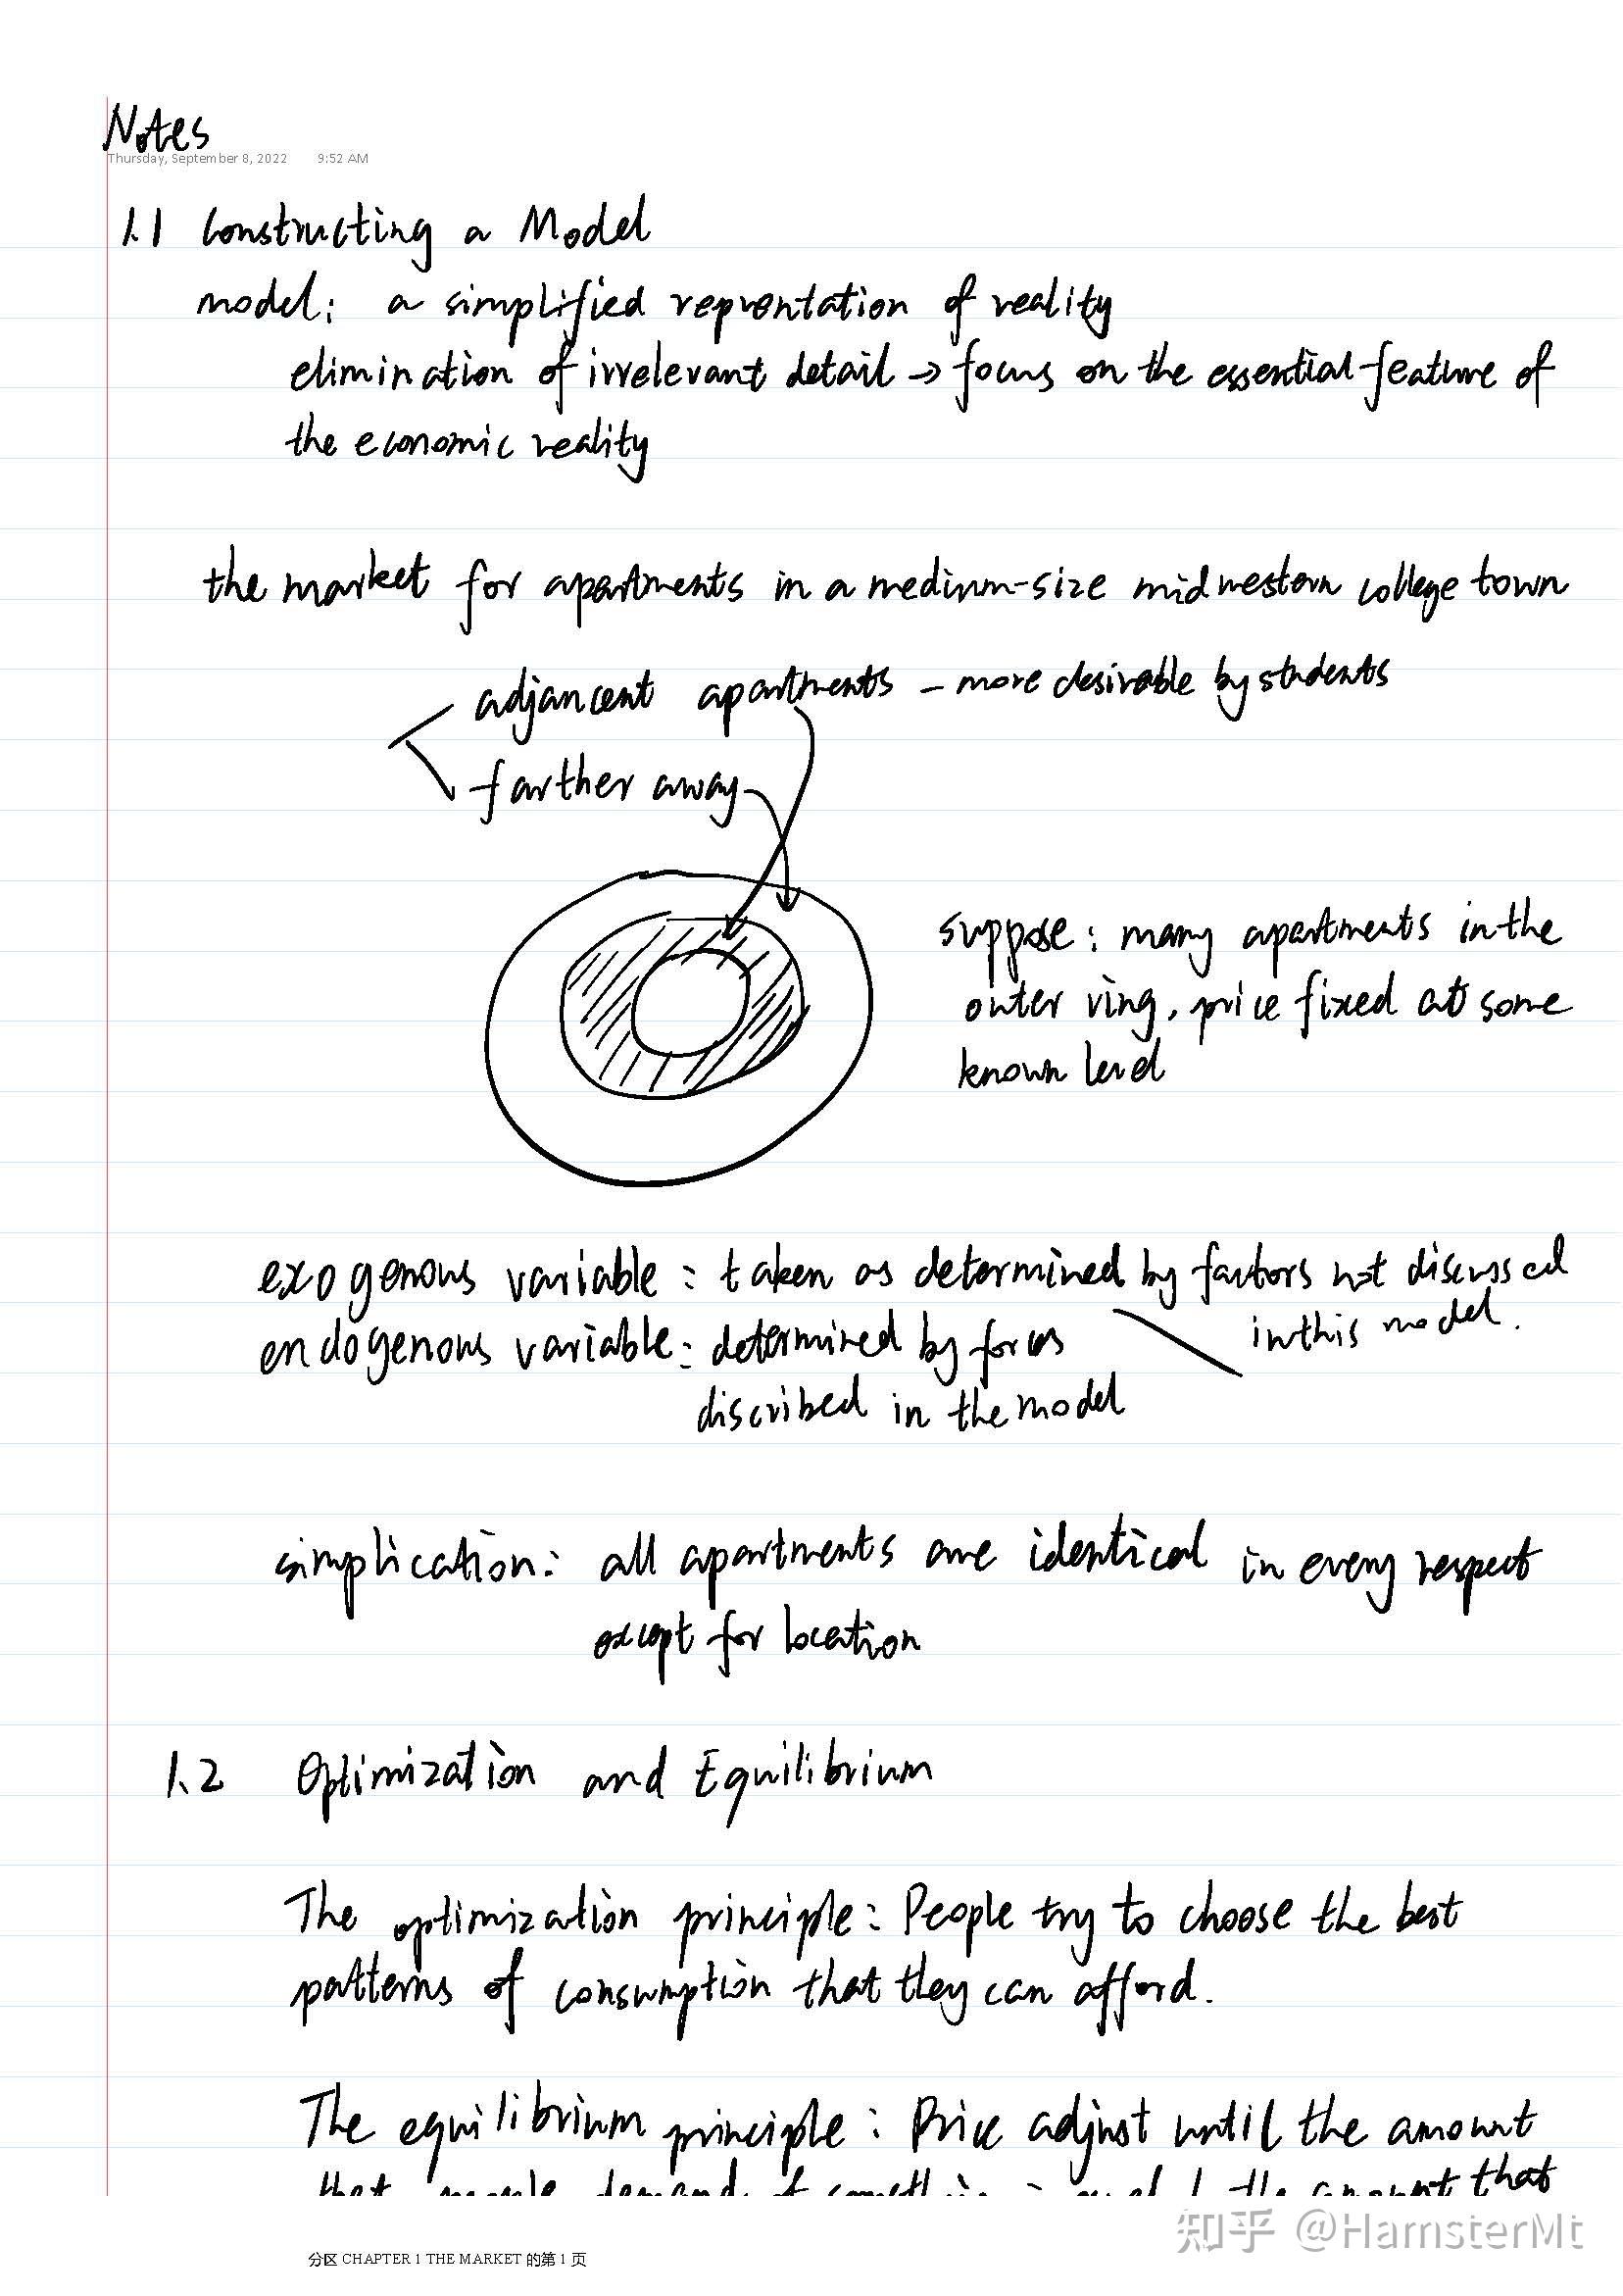 Notes
Thursday, September 8, 2022 9:52 AM
1.1 Constructing a Model
model: a simplified reprentation of reality
elimination of irrelevant detail → focus on the essential feature of
the economic reality
the market for apartments in a medium-size midwestern college town
adjancent apartments – more desirable by students
farther away
suppose: many apartments in the
outer ring, price fixed at some
known level
exogenous variable: taken as determined by factors not discussed
in this model.
endogenous variable: determined by forces
discribed in the model
simplication: all apartments are identical in every respect
except for location
1.2 Optimization and Equilibrium
The optimization principle: People try to choose the best
patterns of consumption that they can afford.
The equilibrium principle: Price adjust until the amount
that people demand of something is equal to the amount that
知乎 @HamsterMt
分区 CHAPTER 1 THE MARKET 的第 1 页